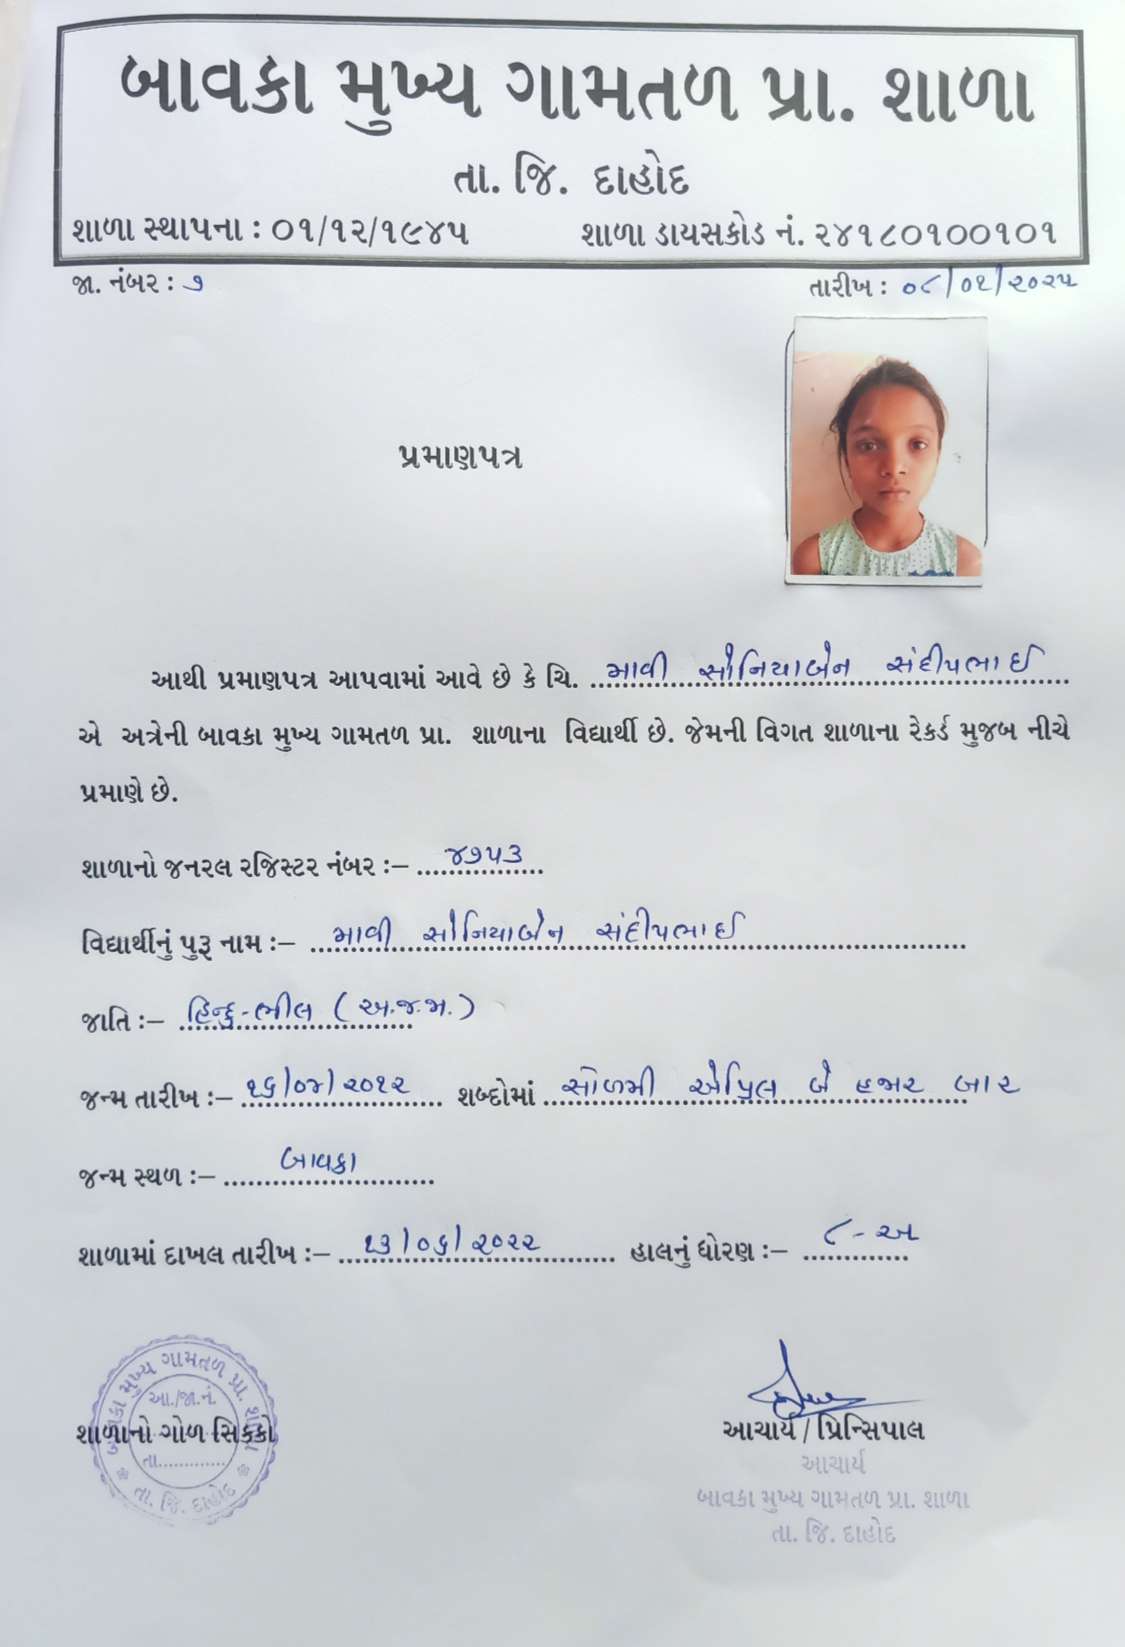 બાવકા મુખ્ય ગામતળ પ્રા. શાળા
તા. જિ. દાહોદ
શાળા સ્થાપના : ૦૧/૧૨/૧૯૪૫ શાળા ડાયસકોડ નં. ૨૪૧૮૦૧૦૦૧૦૧
જા. નંબર : ૭ તારીખ : ૦૮/૦૧/૨૦૨૫
પ્રમાણપત્ર
આથી પ્રમાણપત્ર આપવામાં આવે છે કે ચિ. માવી સોનિયાબેન સંદીપભાઈ
એ અત્રેની બાવકા મુખ્ય ગામતળ પ્રા. શાળાના વિદ્યાર્થી છે. જેમની વિગત શાળાના રેકર્ડ મુજબ નીચે
પ્રમાણે છે.
શાળાનો જનરલ રજિસ્ટર નંબર :– ૪૭૫૩
વિદ્યાર્થીનું પુરૂ નામ :– માવી સોનિયાબેન સંદીપભાઈ
જાતિ :– હિન્દુ-ભીલ (અ.જ.જા.)
જન્મ તારીખ :– ૧૬/૦૪/૨૦૧૨ શબ્દોમાં સોળમી એપ્રિલ બે હજાર બાર
જન્મ સ્થળ :– બાવકા
શાળામાં દાખલ તારીખ :– ૧૩/૦૬/૨૦૨૨ હાલનું ધોરણ :– ૮-અ
બાવકા મુખ્ય ગામતળ પ્રા. શાળા
આ./જા.નં.
તા............
તા. જિ. દાહોદ
શાળાનો ગોળ સિક્કો
આચાર્ય / પ્રિન્સિપાલ
આચાર્ય
બાવકા મુખ્ય ગામતળ પ્રા. શાળા
તા. જિ. દાહોદ